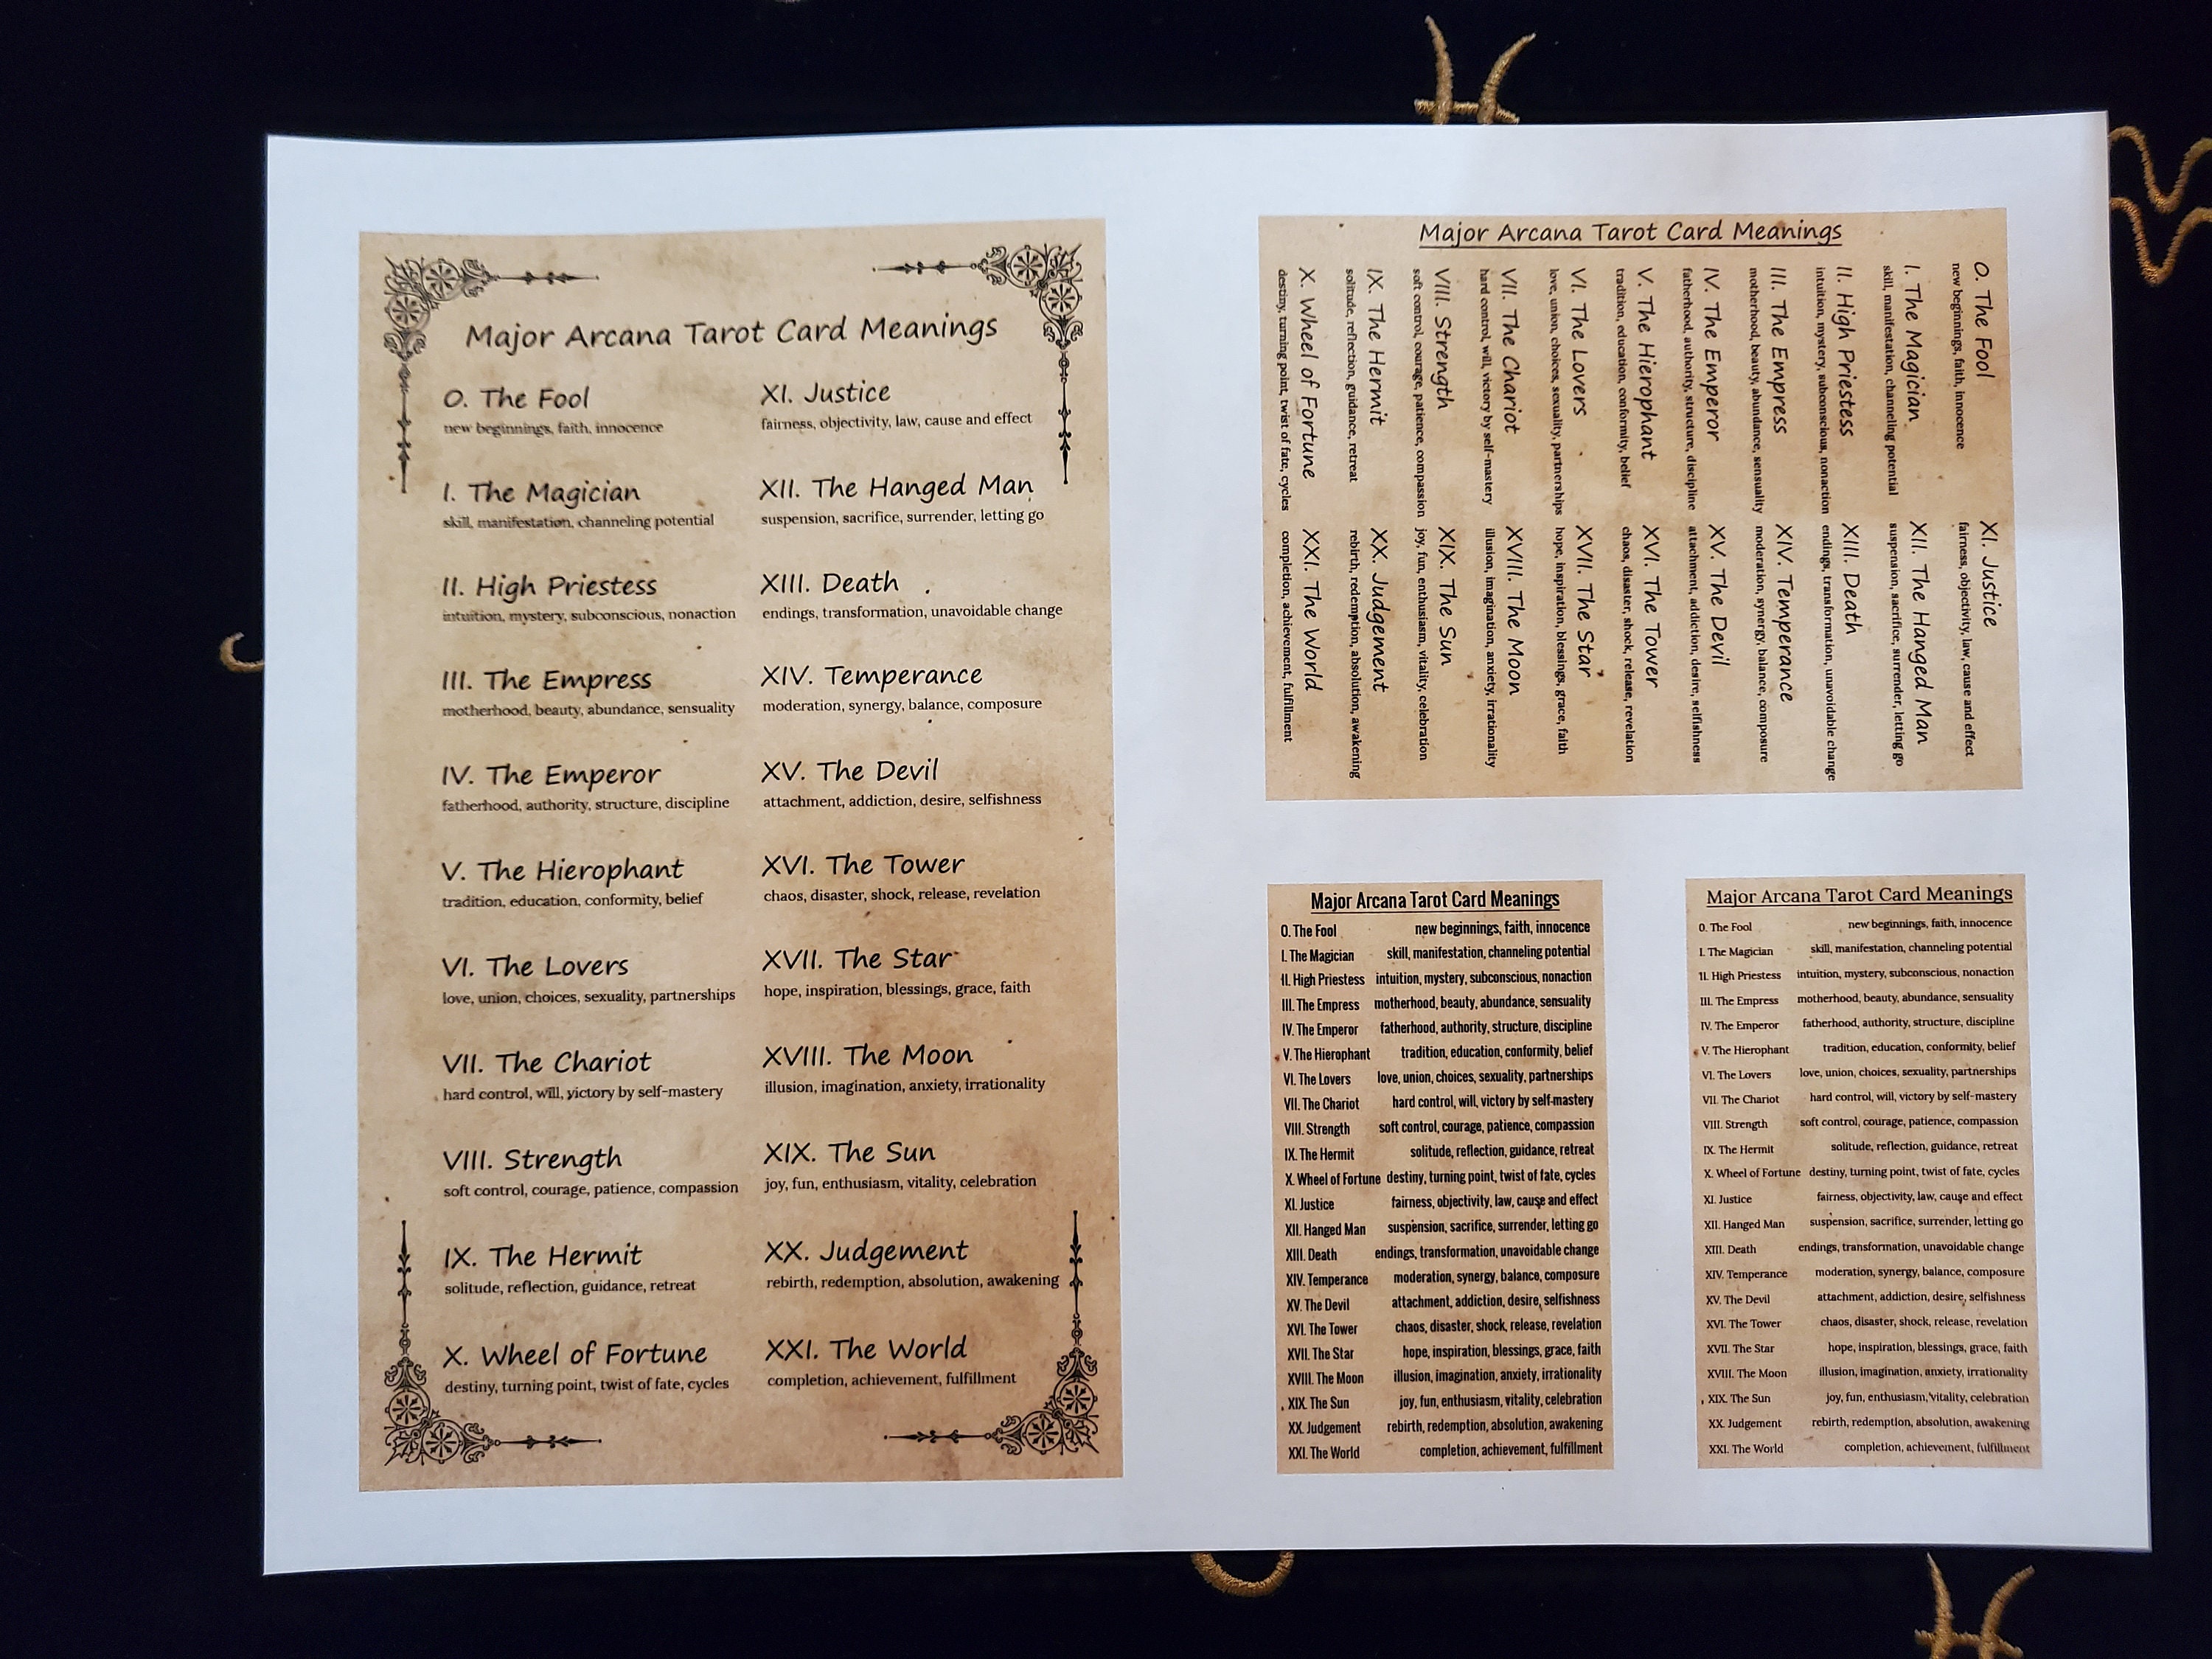 Major Arcana Tarot Card Meanings
0. The Fool
new beginnings, faith, innocence
I. The Magician
skill, manifestation, channeling potential
II. High Priestess
intuition, mystery, subconscious, nonaction
III. The Empress
motherhood, beauty, abundance, sensuality
IV. The Emperor
fatherhood, authority, structure, discipline
V. The Hierophant
tradition, education, conformity, belief
VI. The Lovers
love, union, choices, sexuality, partnerships
VII. The Chariot
hard control, will, victory by self-mastery
VIII. Strength
soft control, courage, patience, compassion
IX. The Hermit
solitude, reflection, guidance, retreat
X. Wheel of Fortune
destiny, turning point, twist of fate, cycles
XI. Justice
fairness, objectivity, law, cause and effect
XII. The Hanged Man
suspension, sacrifice, surrender, letting go
XIII. Death
endings, transformation, unavoidable change
XIV. Temperance
moderation, synergy, balance, composure
XV. The Devil
attachment, addiction, desire, selfishness
XVI. The Tower
chaos, disaster, shock, release, revelation
XVII. The Star
hope, inspiration, blessings, grace, faith
XVIII. The Moon
illusion, imagination, anxiety, irrationality
XIX. The Sun
joy, fun, enthusiasm, vitality, celebration
XX. Judgement
rebirth, redemption, absolution, awakening
XXI. The World
completion, achievement, fulfillment
Major Arcana Tarot Card Meanings
0. The Fool
new beginnings, faith, innocence
I. The Magician
skill, manifestation, channeling potential
II. High Priestess
intuition, mystery, subconscious, nonaction
III. The Empress
motherhood, beauty, abundance, sensuality
IV. The Emperor
fatherhood, authority, structure, discipline
V. The Hierophant
tradition, education, conformity, belief
VI. The Lovers
love, union, choices, sexuality, partnerships
VII. The Chariot
hard control, will, victory by self-mastery
VIII. Strength
soft control, courage, patience, compassion
IX. The Hermit
solitude, reflection, guidance, retreat
X. Wheel of Fortune
destiny, turning point, twist of fate, cycles
XI. Justice
fairness, objectivity, law, cause and effect
XII. The Hanged Man
suspension, sacrifice, surrender, letting go
XIII. Death
endings, transformation, unavoidable change
XIV. Temperance
moderation, synergy, balance, composure
XV. The Devil
attachment, addiction, desire, selfishness
XVI. The Tower
chaos, disaster, shock, release, revelation
XVII. The Star
hope, inspiration, blessings, grace, faith
XVIII. The Moon
illusion, imagination, anxiety, irrationality
XIX. The Sun
joy, fun, enthusiasm, vitality, celebration
XX. Judgement
rebirth, redemption, absolution, awakening
XXI. The World
completion, achievement, fulfillment
Major Arcana Tarot Card Meanings
0. The Fool new beginnings, faith, innocence
I. The Magician skill, manifestation, channeling potential
II. High Priestess intuition, mystery, subconscious, nonaction
III. The Empress motherhood, beauty, abundance, sensuality
IV. The Emperor fatherhood, authority, structure, discipline
V. The Hierophant tradition, education, conformity, belief
VI. The Lovers love, union, choices, sexuality, partnerships
VII. The Chariot hard control, will, victory by self-mastery
VIII. Strength soft control, courage, patience, compassion
IX. The Hermit solitude, reflection, guidance, retreat
X. Wheel of Fortune destiny, turning point, twist of fate, cycles
XI. Justice fairness, objectivity, law, cause and effect
XII. Hanged Man suspension, sacrifice, surrender, letting go
XIII. Death endings, transformation, unavoidable change
XIV. Temperance moderation, synergy, balance, composure
XV. The Devil attachment, addiction, desire, selfishness
XVI. The Tower chaos, disaster, shock, release, revelation
XVII. The Star hope, inspiration, blessings, grace, faith
XVIII. The Moon illusion, imagination, anxiety, irrationality
XIX. The Sun joy, fun, enthusiasm, vitality, celebration
XX. Judgement rebirth, redemption, absolution, awakening
XXI. The World completion, achievement, fulfillment
Major Arcana Tarot Card Meanings
0. The Fool new beginnings, faith, innocence
I. The Magician skill, manifestation, channeling potential
II. High Priestess intuition, mystery, subconscious, nonaction
III. The Empress motherhood, beauty, abundance, sensuality
IV. The Emperor fatherhood, authority, structure, discipline
V. The Hierophant tradition, education, conformity, belief
VI. The Lovers love, union, choices, sexuality, partnerships
VII. The Chariot hard control, will, victory by self-mastery
VIII. Strength soft control, courage, patience, compassion
IX. The Hermit solitude, reflection, guidance, retreat
X. Wheel of Fortune destiny, turning point, twist of fate, cycles
XI. Justice fairness, objectivity, law, cause and effect
XII. Hanged Man suspension, sacrifice, surrender, letting go
XIII. Death endings, transformation, unavoidable change
XIV. Temperance moderation, synergy, balance, composure
XV. The Devil attachment, addiction, desire, selfishness
XVI. The Tower chaos, disaster, shock, release, revelation
XVII. The Star hope, inspiration, blessings, grace, faith
XVIII. The Moon illusion, imagination, anxiety, irrationality
XIX. The Sun joy, fun, enthusiasm, vitality, celebration
XX. Judgement rebirth, redemption, absolution, awakening
XXI. The World completion, achievement, fulfillment